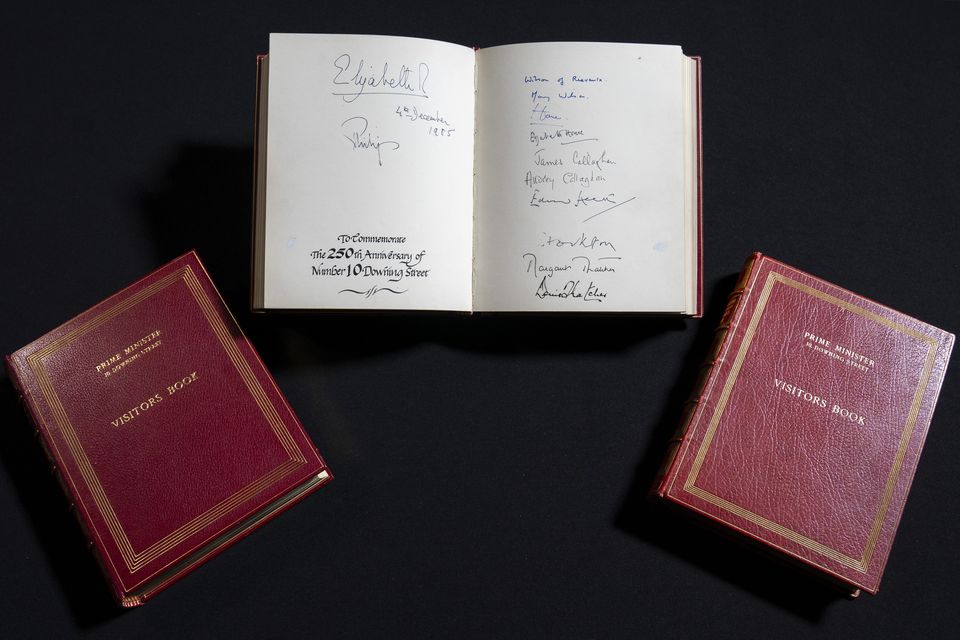 Elizabeth R
4th December
1985
Philip
To Commemorate
The 250th Anniversary of
Number 10 Downing Street
Wilson of Rievaulx
Mary Wilson.
Home.
Elizabeth Home
James Callaghan
Audrey Callaghan
Edward Heath
Stockton
Margaret Thatcher
Denis Thatcher
PRIME MINISTER
10 DOWNING STREET
VISITORS BOOK
PRIME MINISTER
10 DOWNING STREET
VISITORS BOOK